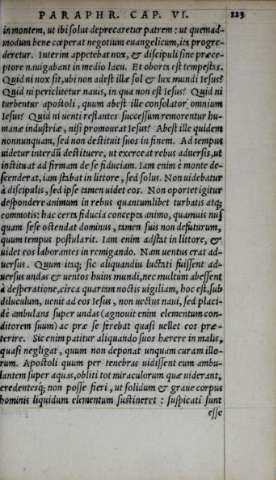 PARAPHR. CAP. VI. 223
in montem, ut ibi solus deprecaretur patrem: ut quemad-
modum bene cœperat negotium euangelicum, ita progre-
deretur. Interim appetebat nox, & discipuli sine præce-
ptore nauigabant in medio lacu. Et oborta est tempestas.
Quid ni nox sit, ubi non adest ille sol & lux mundi Iesus?
Quid ni periclitetur nauis, in qua non est Iesus? Quid ni
turbentur apostoli, quum abest ille consolator omnium
Iesus? Quid ni uenti restantes successum remorentur hu-
manæ industriæ, nisi promoueat Iesus? Abest ille quidem
nonnunquam, sed non destituit suos in finem. Ad tempus
uidetur interdũ destituere, ut exerceat rebus aduersis, ut
instituat ad firmam de se fiduciam. Iam enim è monte de-
scenderat, iam stabat in littore, sed solus. Non uidebatur
à discipulis, sed ipse tamen uidet eos. Non oportet igitur
despondere animum in rebus quantumlibet turbatis atq;
commotis: hac certa fiducia concepta animo, quamuis nusq̃
quam sese ostendat dominus, tamen suis non defuturum,
quum tempus postularit. Iam enim adstat in littore, &
uidet eos laborantes in remigando. Nam uentus erat ad-
uersus. Quum itaq; sic aliquandiu luctati fuissent ad-
uersus undas & uentos huius mundi, nec multum abessent
à desperatione, circa quartam noctis uigiliam, hoc est, sub
diluculum, uenit ad eos Iesus, non uectus naui, sed placi-
dè ambulans super undas (agnouit enim elementum con-
ditorem suum) ac præ se ferebat quasi uellet eos præ-
terire. Sic enim patitur aliquando suos hærere in malis,
quasi negligat, quum non deponat unquam curam illo-
rum. Apostoli quum per tenebras uidissent eum ambu-
lantem super aquas, obliti tot miraculorum quæ uiderant,
credentesq; non posse fieri, ut solidum & graue corpus
hominis liquidum elementum sustineret: suspicati sunt
esse